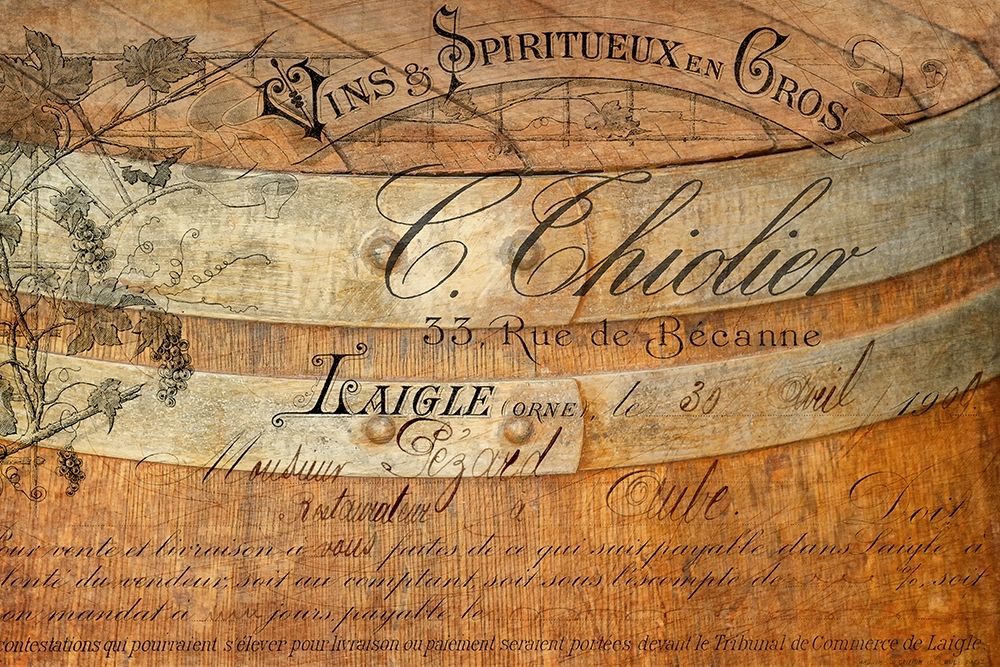 Vins & Spiritueux en Gros
C. Chiolier
33, Rue de Bécanne
Laigle (Orne), le 30 Avril 1900
Monsieur Gézard
Restaurateur à Aube. Doit
Pour vente et livraison à vous faites de ce qui suit payable dans Laigle à
lonté du vendeur, soit au comptant, soit sous l'escompte de %, soit
on mandat à jours, payable le
contestations qui pourraient s'élever pour livraison ou paiement seraient portées devant le Tribunal de Commerce de Laigle